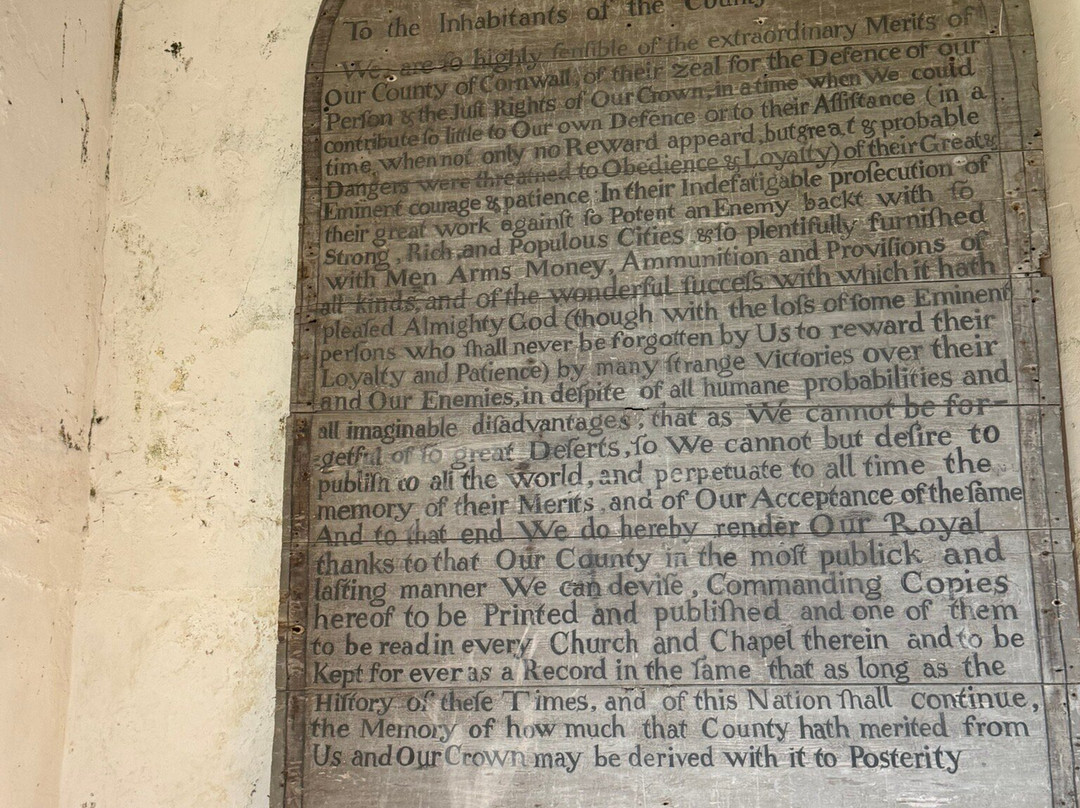 To the Inhabitants of the County
We are so highly ſenſible of the extraordinary Merits of
Our County of Cornwall, of their zeal for the Defence of our
Perſon & the Juſt Rights of Our Crown, in a time when We could
contribute ſo little to Our own Defence or to their Aſſiſtance (in a
time, when not only no Reward appeard, but great & probable
Dangers were threatned to Obedience & Loyalty) of their Great &
Eminent courage & patience In their Indefatigable proſecution of
their great work againſt ſo Potent an Enemy backt with ſo
Strong, Rich and Populous Cities, & ſo plentifully furniſhed
with Men Arms Money, Ammunition and Proviſions of
all kinds, and of the wonderful ſucceſs with which it hath
pleaſed Almighty God (though with the loſs of ſome Eminent
perſons who ſhall never be forgotten by Us to reward their
Loyalty and Patience) by many ſtrange Victories over their
and Our Enemies, in deſpite of all humane probabilities and
all imaginable diſadvantages, that as We cannot be for-
-getful of ſo great Deſerts, ſo We cannot but deſire to
publiſh to all the world, and perpetuate to all time the
memory of their Merits, and of Our Acceptance of the ſame
And to that end We do hereby render Our Royal
thanks to that Our County in the moſt publick and
laſting manner We can deviſe, Commanding Copies
hereof to be Printed and publiſhed and one of them
to be read in every Church and Chapel therein and to be
Kept for ever as a Record in the ſame that as long as the
Hiſtory of theſe Times, and of this Nation ſhall continue,
the Memory of how much that County hath merited from
Us and Our Crown may be derived with it to Posterity